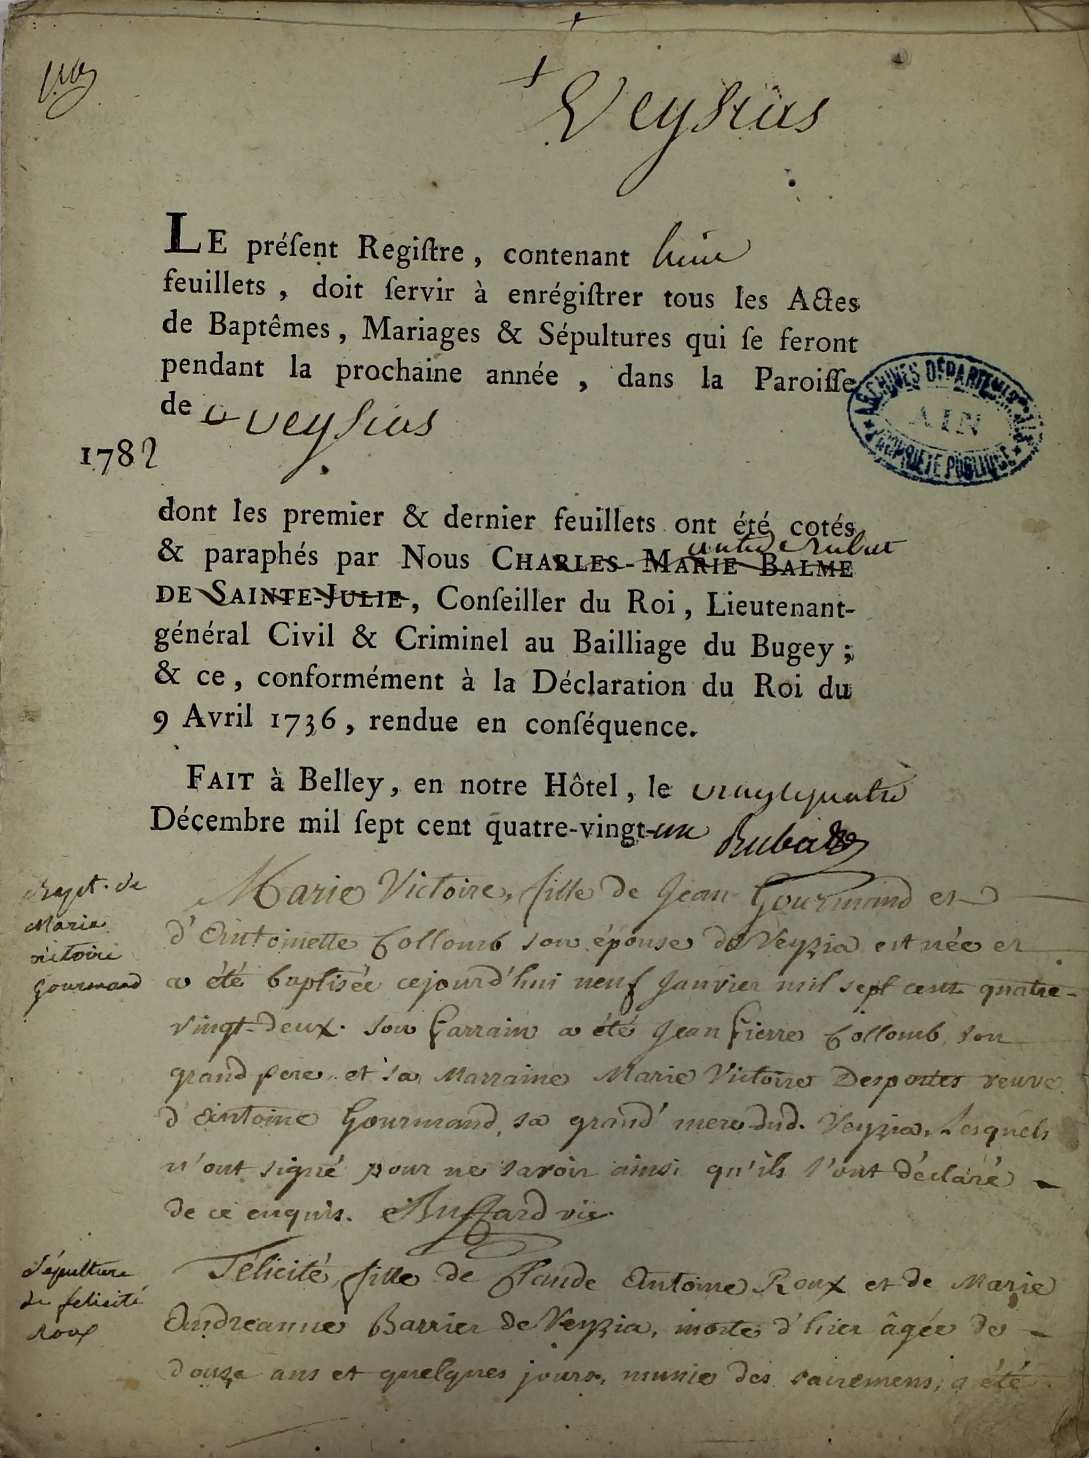 Veysius
LE préſent Regiſtre, contenant huit
feuillets, doit ſervir à enrégiſtrer tous les Actes
de Baptêmes, Mariages & Sépultures qui ſe feront
pendant la prochaine année, dans la Paroiſſe
de Veysius
1782
ARCHIVES DÉPARTEMENTALES
AIN
PROPRIÉTÉ PUBLIQUE
dont les premier & dernier feuillets ont été cotés
& paraphés par Nous CHARLES-MARIE BALME
DE SAINTE-JULIE, Conſeiller du Roi, Lieutenant-
général Civil & Criminel au Bailliage du Bugey;
& ce, conformément à la Déclaration du Roi du
9 Avril 1736, rendue en conſéquence.
FAIT à Belley, en notre Hôtel, le vingtquatre
Décembre mil ſept cent quatre-vingt-un Rubat
Bapt. de
Marie
victoire
Gourmand
Marie Victoire, fille de Jean Gourmand et
d'Antoinette Collomb son épouse de Veyzia est née et
a été baptisée cejourd'hui neuf Janvier mil sept cent quatre-
vingt-deux. Son Parrain a été Jean Pierre Collomb son
grand pere et sa Marraine Marie Victoire Desportes veuve
d'Antoine Gourmand, sa grand' mere dud. Veyzia, Lesquels
n'ont signé pour ne savoir ainsi qu'ils l'ont déclaré
de ce enquis. Buffard vic.
Sépulture
de felicité
Roux
Félicité, fille de Claude Antoine Roux et de Marie
Andreanne Barrier de Veyzia, morte d'hier âgée de
douze ans et quelques jours, munie des sacremens, a été